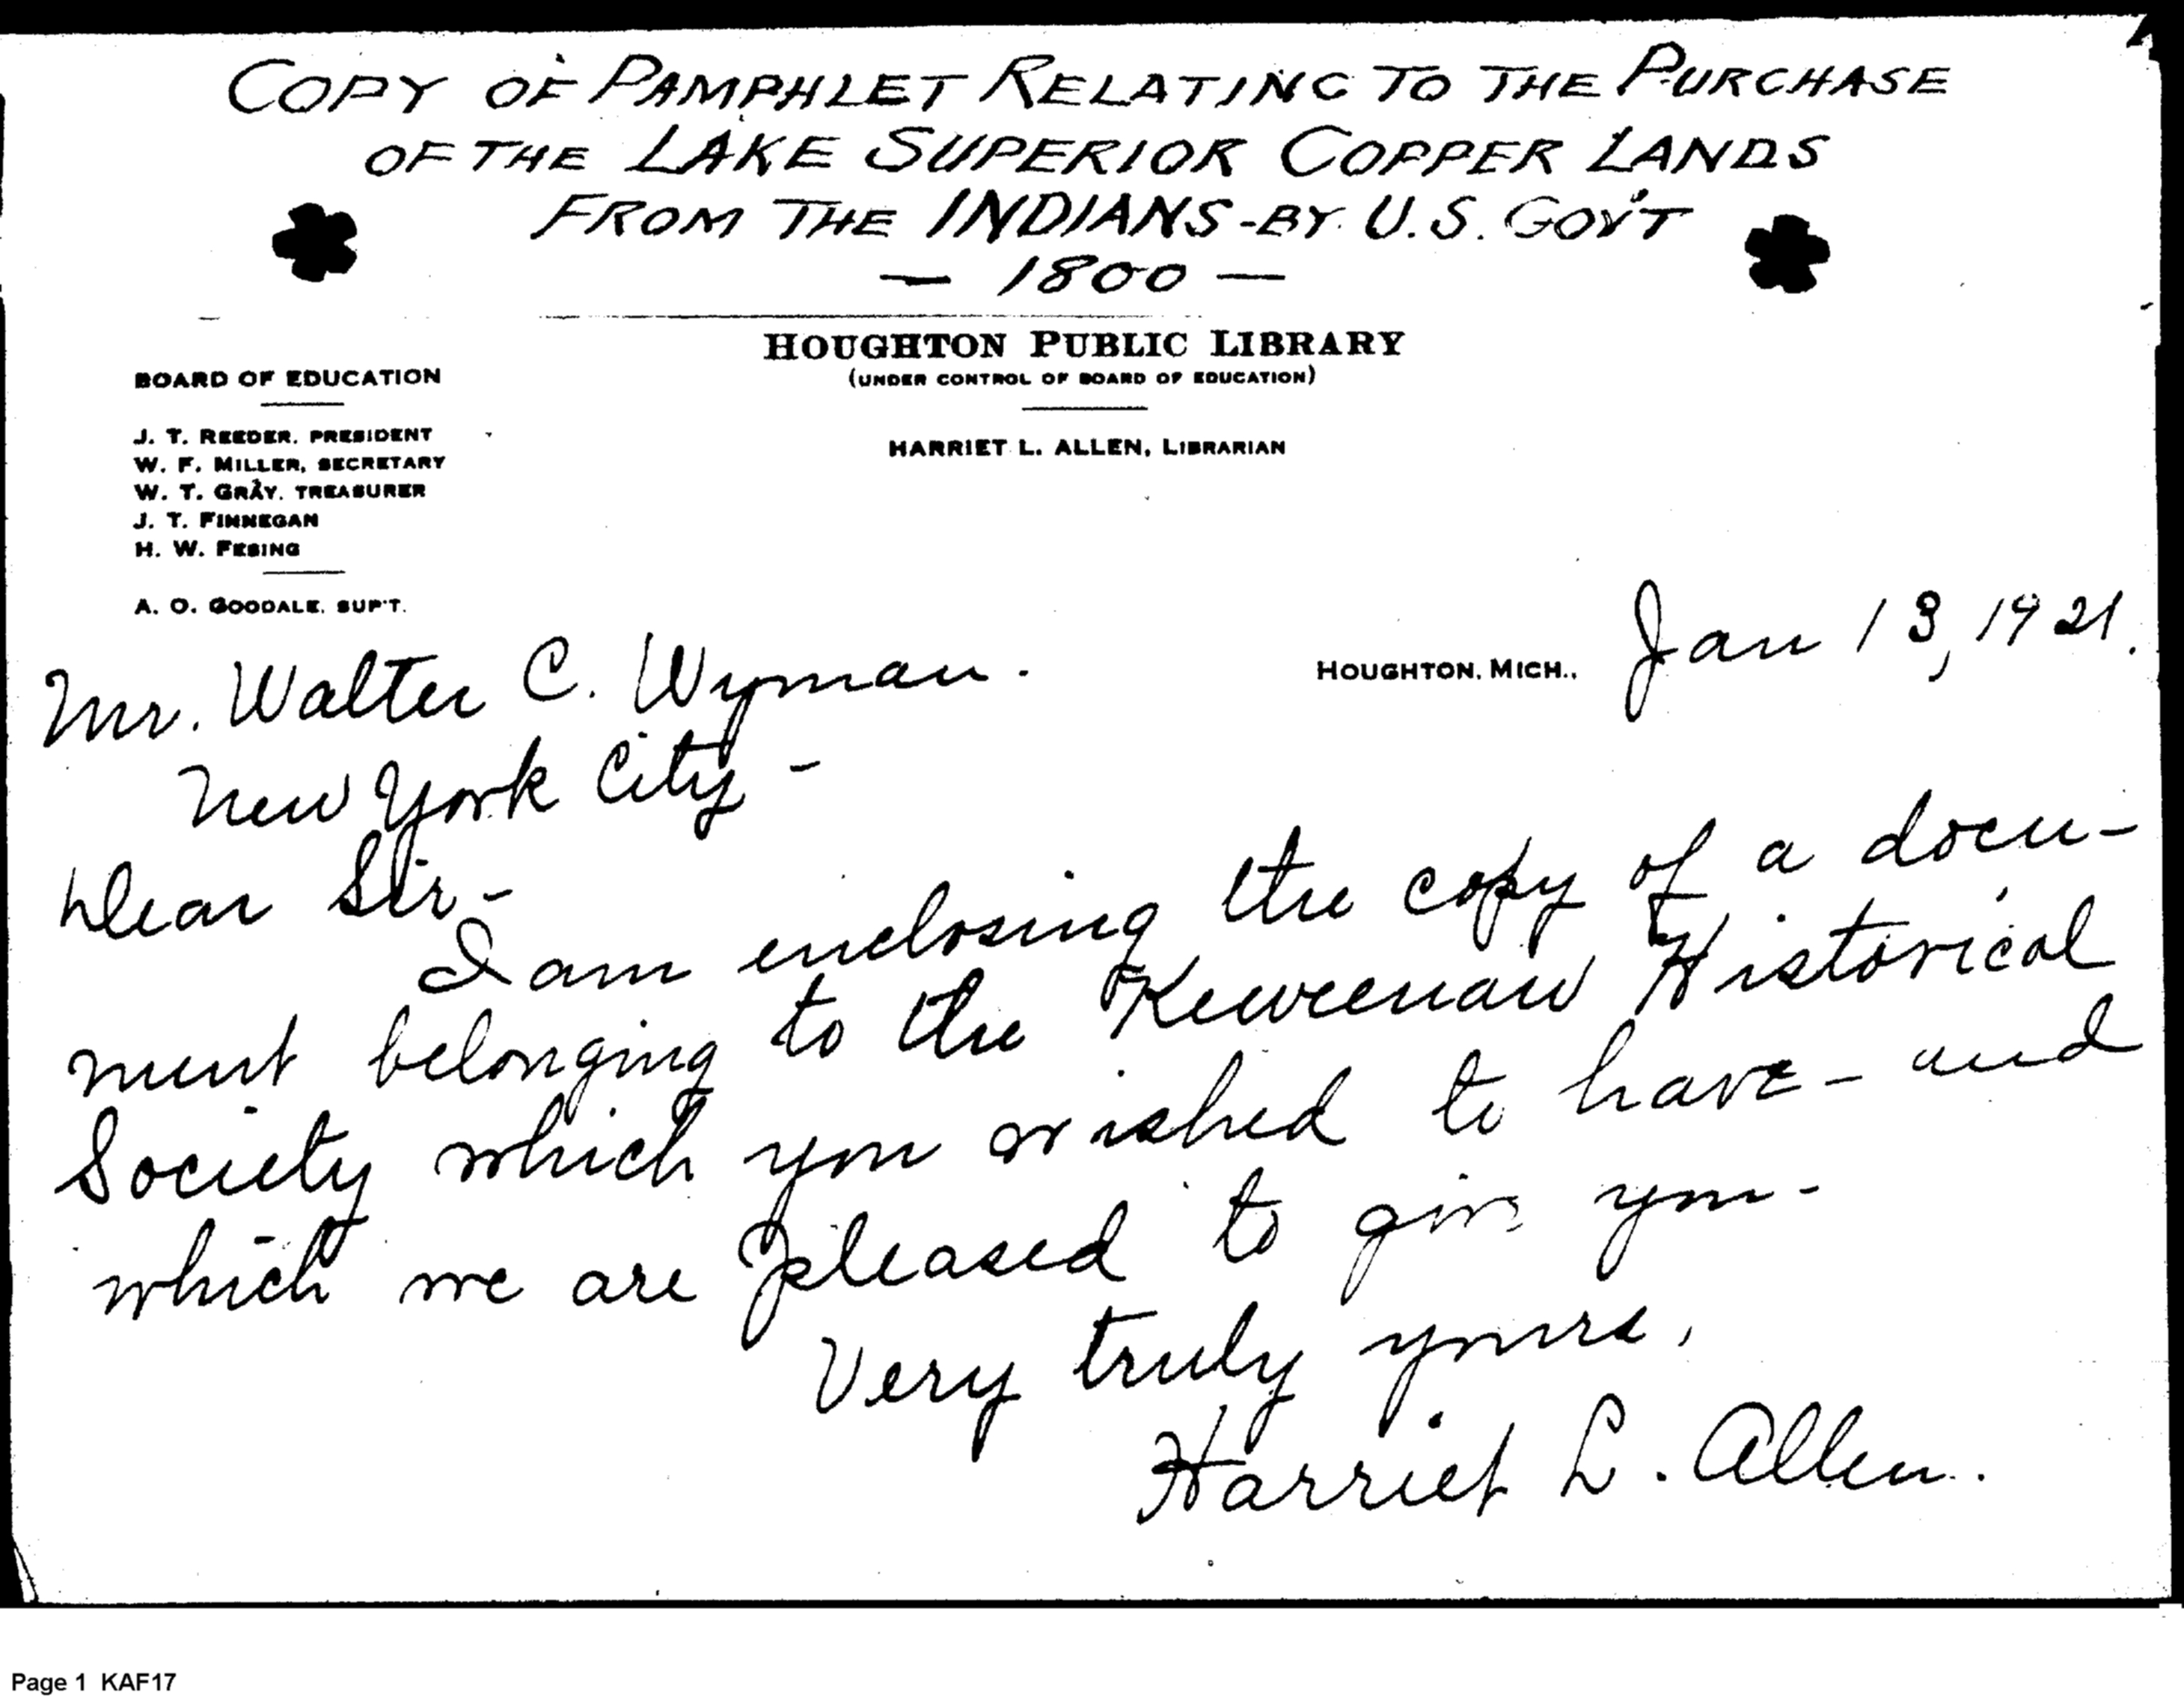 COPY OF PAMPHLET RELATING TO THE PURCHASE
OF THE LAKE SUPERIOR COPPER LANDS
FROM THE INDIANS - BY U.S. GOV'T
— 1800 —
HOUGHTON PUBLIC LIBRARY
(UNDER CONTROL OF BOARD OF EDUCATION)
HARRIET L. ALLEN, LIBRARIAN
BOARD OF EDUCATION
J. T. REEDER, PRESIDENT
W. F. MILLER, SECRETARY
W. T. GRAY, TREASURER
J. T. FINNEGAN
H. W. FESING
A. O. GOODALE, SUP'T.
HOUGHTON, MICH., Jan 13, 1921.
Mr. Walter C. Wyman.
New York City -
Dear Sir -
I am enclosing the copy of a docu-
ment belonging to the Keweenaw Historical
Society which you wished to have - and
which we are pleased to give you -
Very truly yours,
Harriet L. Allen.
Page 1 KAF17